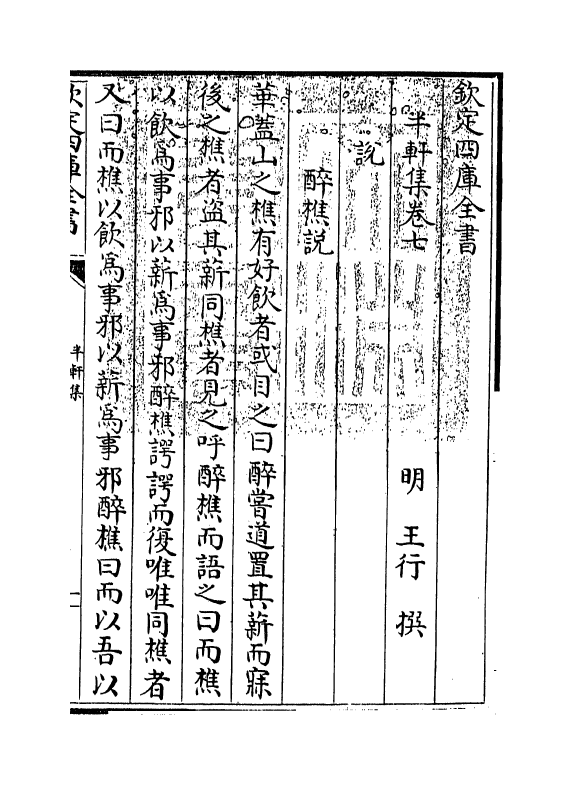 欽定四庫全書
半軒集卷七
明　王行　撰
説
醉樵説
華蓋山之樵有好飲者或目之曰醉嘗道置其薪而寐
後之樵者盜其薪同樵者見之呼醉樵而語之曰而樵
以飲爲事邪以薪爲事邪醉樵諤諤而復唯唯同樵者
又曰而樵以飲爲事邪以薪爲事邪醉樵曰而以吾以
欽定四庫全書
半軒集
一